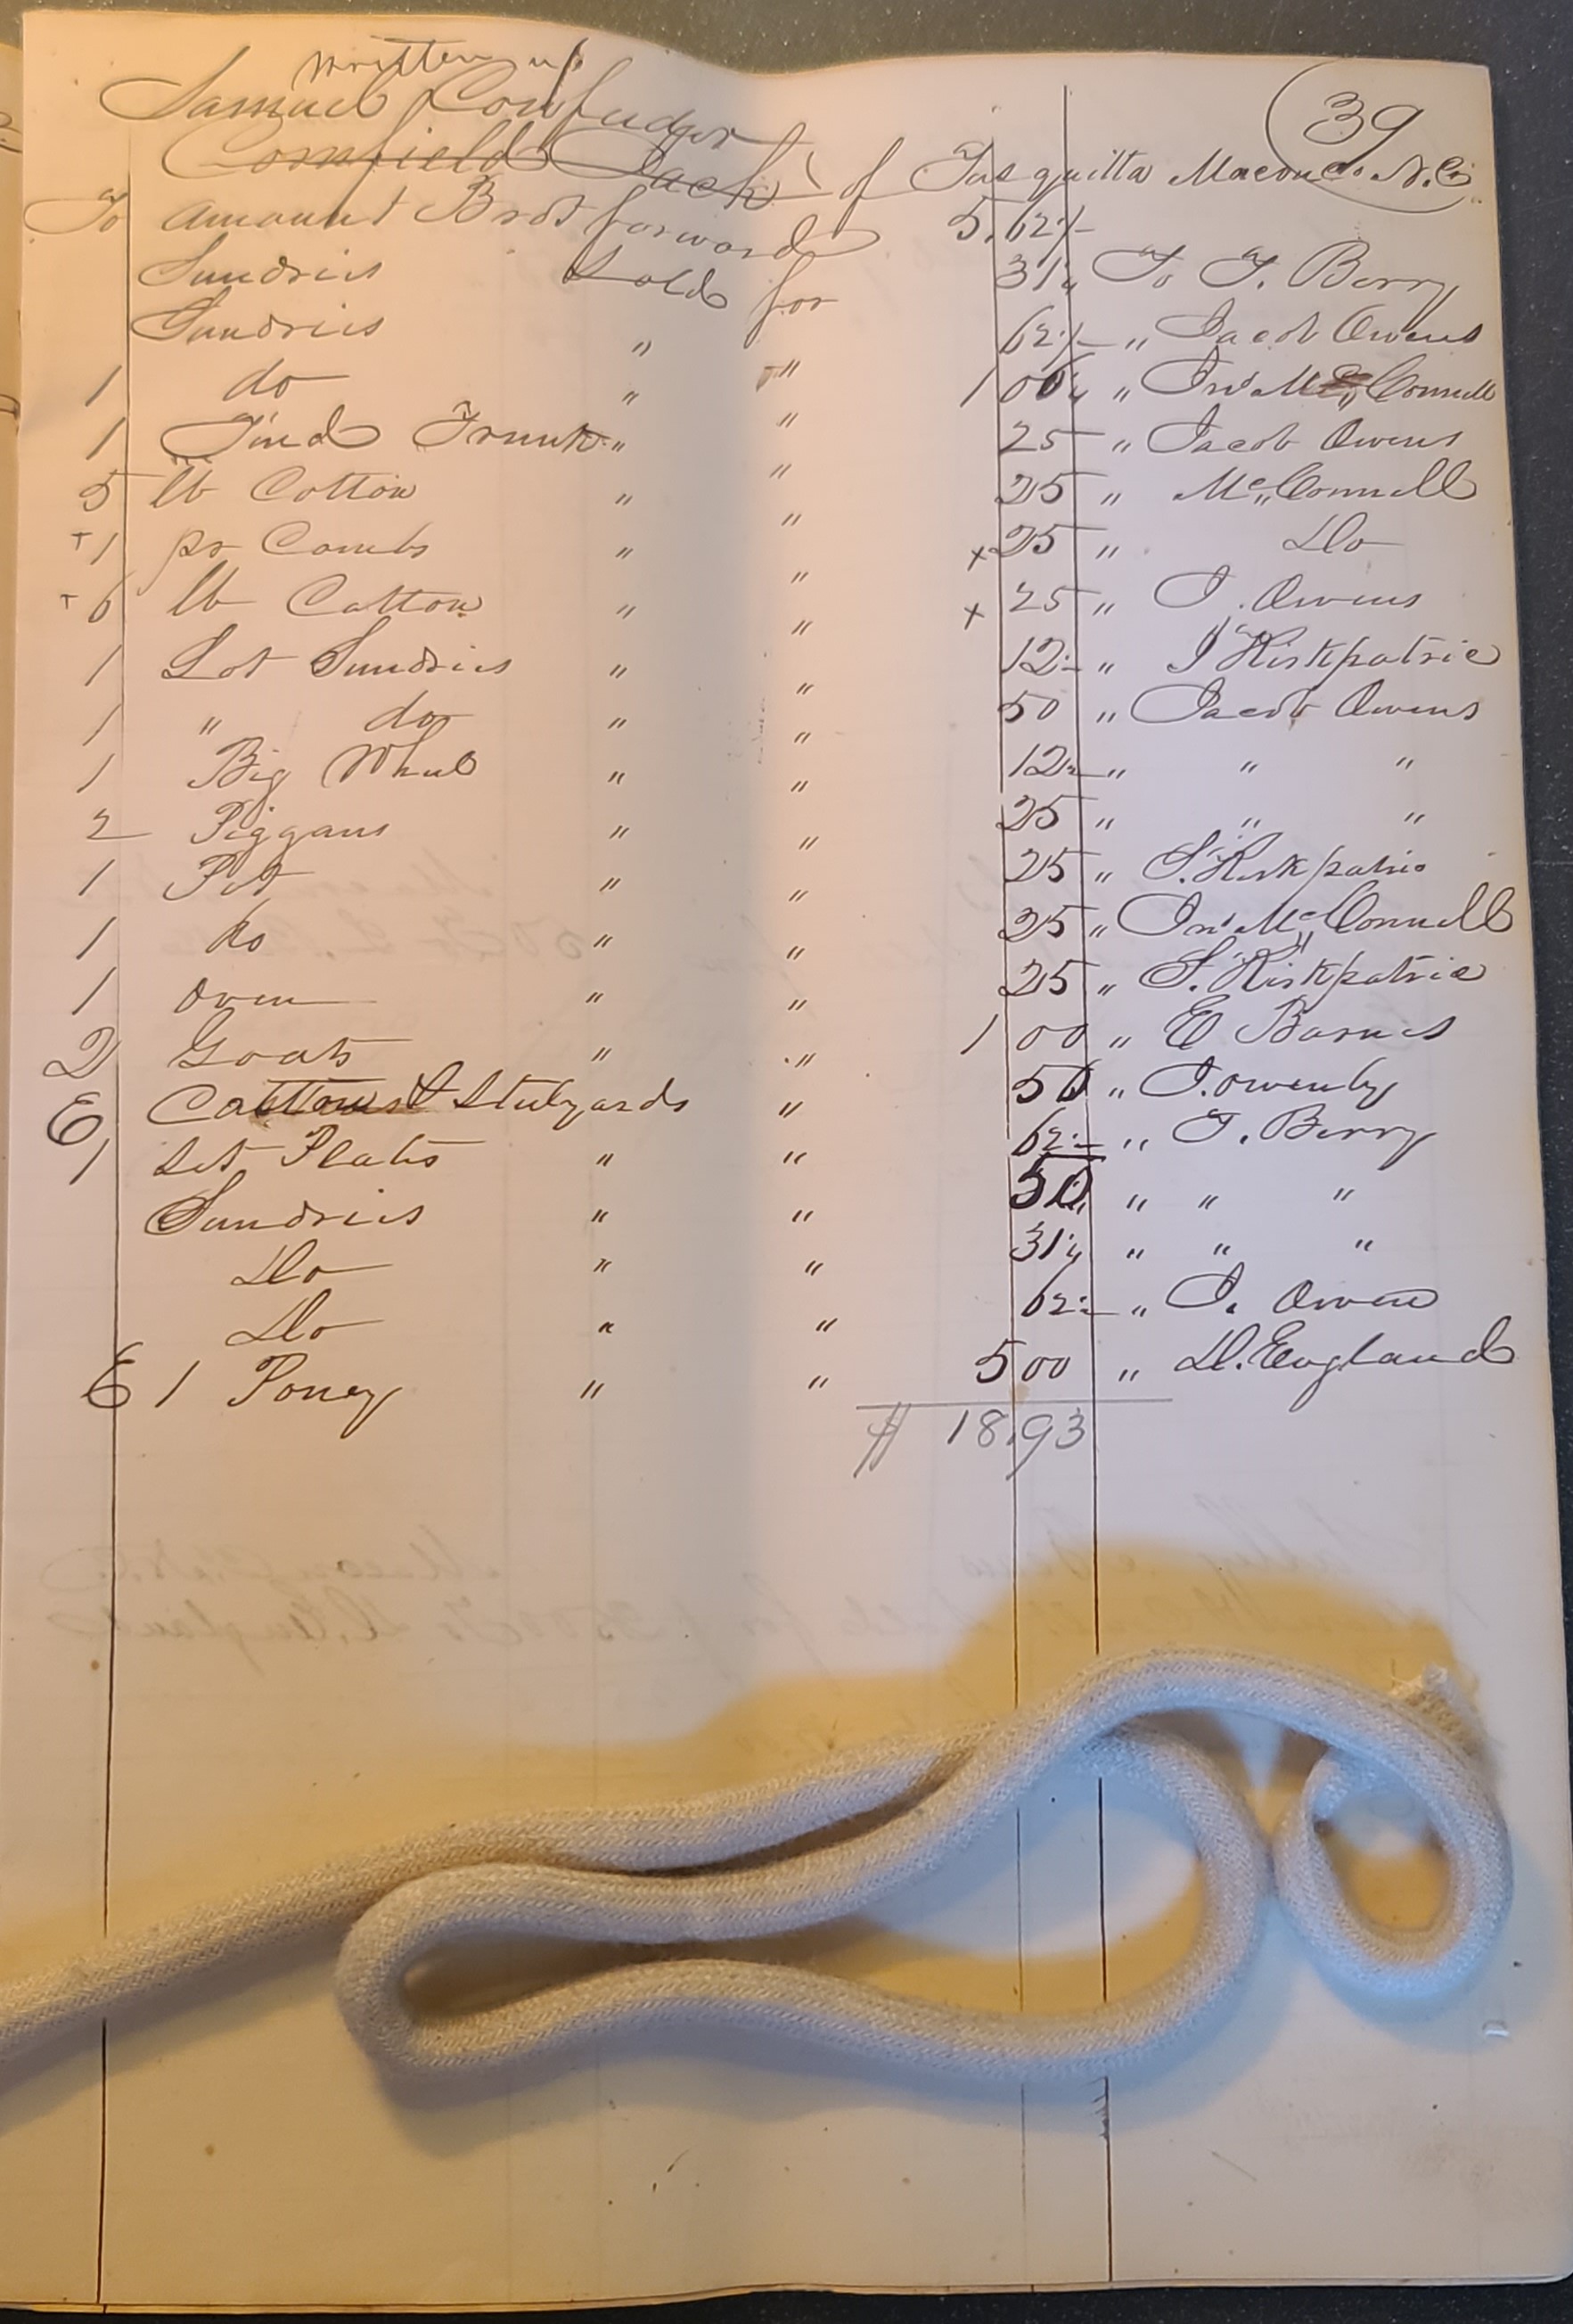 written up
39
Samuel Confudger
Cornfield Jack of Tusquitta Macon Co. N.C.
To amount Brot forward 5.62½
Sundries Sold for 31¼ To T. Berry
Sundries " 62½ " Jacob Owens
1 do " " 1 00 " Jno McConnell
1 Tind Trunk " " 25 " Jacob Owens
5 lb Cotton " " 25 " McConnell
+1 pr Cards " " +25 " Do
+6 lb Cotton " " +25 " J. Owens
1 Lot Sundries " " 12½ " J Kirkpatric
1 " do " " 50 " Jacob Owens
1 Big Wheel " " 12½ " " "
2 Piggans " " 25 " " "
1 Pot " " 25 " S. Kirkpatric
1 do " " 25 " Jno McConnell
1 oven " " 25 " S. Kirkpatric
2 Goats " " 1 00 " E Barnes
E & Stulyards " 50 " J. Owenby
1 set Plates " " 62½ " T. Berry
Sundries " " 50 " " "
Do " " 31¼ " " "
Do " " 62½ " J. Owen
E 1 Poney " " 5 00 " D. England
$ 18.93